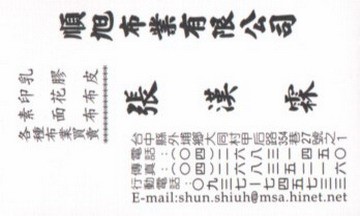 順旭布業有限公司
乳膠皮
印花布
素面布
各種布業買賣
張漢霖
台中縣外埔鄉大同村甲后路354巷27號之1
電話:(○四)
傳真:(○四)
行動電話:○九三七
E-mail:shun.shiuh@msa.hinet.net